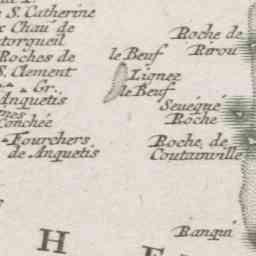 S. Catherine
Chau de
torgueil
Roches de
S. Clement
Gr.
Anquetis
Conchée
Fourchers
de Anquetis
le Bœuf
Lignee
le Bœuf
Roche de
Rérou
Seuequé
Roche
Roche de
Coutainville
Ranqui
H